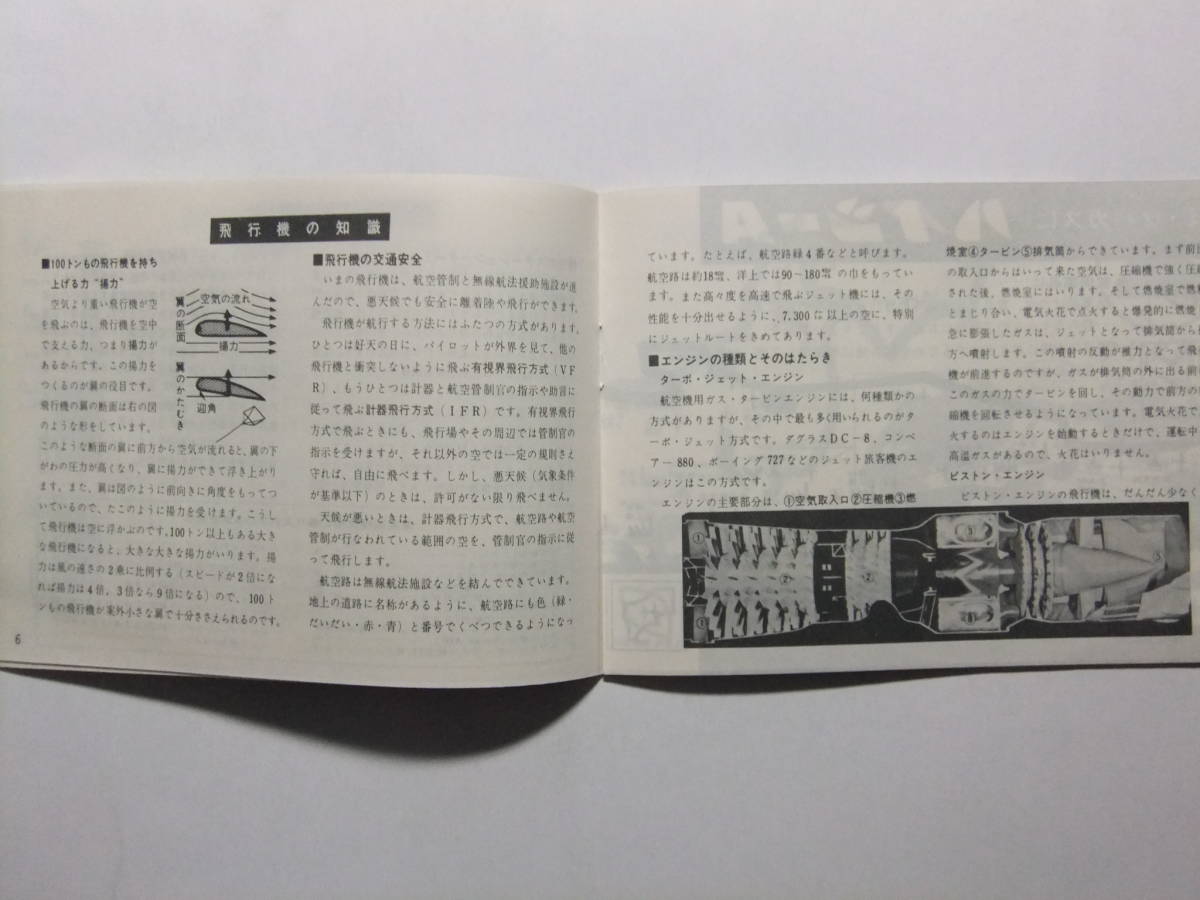 飛行機の知識
■100トンもの飛行機を持ち
上げる力“揚力”
空気より重い飛行機が空
を飛ぶのは、飛行機を空中
で支える力、つまり揚力が
あるからです。この揚力を
つくるのが翼の役目です。
飛行機の翼の断面は右の図
のような形をしています。
翼の断面
空気の流れ
揚力
翼のかたむき
迎角
このような断面の翼に前方から空気が流れると、翼の下
がわの圧力が高くなり、翼に揚力ができて浮き上がり
ます。また、翼は図のように前向きに角度をもってつ
いているので、たこのように揚力を受けます。こうし
て飛行機は空に浮かぶのです。100トン以上もある大き
な飛行機になると、大きな大きな揚力がいります。揚
力は風の速さの2乗に比例する(スピードが2倍にな
れば揚力は4倍，3倍なら9倍になる)ので、100ト
ンもの飛行機が案外小さな翼で十分ささえられるのです。
6
■飛行機の交通安全
いまの飛行機は、航空管制と無線航法援助施設が進
んだので、悪天候でも安全に離着陸や飛行ができます。
飛行機が航行する方法にはふたつの方式があります。
ひとつは好天の日に、パイロットが外界を見て、他の
飛行機と衝突しないように飛ぶ有視界飛行方式(VF
R)、もうひとつは計器と航空管制官の指示や助言に
従って飛ぶ計器飛行方式(IFR)です。有視界飛行
方式で飛ぶときにも、飛行場やその周辺では管制官の
指示を受けますが、それ以外の空では一定の規則さえ
守れば、自由に飛べます。しかし、悪天候(気象条件
が基準以下)のときは、許可がない限り飛べません。
天候が悪いときは、計器飛行方式で、航空路や航空
管制が行なわれている範囲の空を、管制官の指示に従
って飛行します。
航空路は無線航法施設などを結んでできています。
地上の道路に名称があるように、航空路にも色(緑・
だいだい・赤・青)と番号でくべつできるようになっ
ています。たとえば、航空路緑4番などと呼びます。
航空路は約18㌔、洋上では90－180㌔の巾をもってい
ます。また高々度を高速で飛ぶジェット機には、その
性能を十分出せるように、7,300㍍以上の空に、特別
にジェットルートをきめてあります。
■エンジンの種類とそのはたらき
ターボ・ジェット・エンジン
航空機用ガス・タービンエンジンには、何種類かの
方式がありますが、その中で最も多く用いられるのがタ
ーボ・ジェット方式です。ダグラスDC－8、コンベ
アー880、ボーイング727などのジェット旅客機のエ
ンジンはこの方式です。
エンジンの主要部分は、①空気取入口②圧縮機③燃
焼室④タービン⑤排気筒からできています。まず前
の取入口からはいって来た空気は、圧縮機で強く圧
された後、燃焼室にはいります。そして燃焼室で燃
とまじり合い、電気火花で点火すると爆発的に燃
急に膨張したガスは、ジェットとなって排気筒から
方へ噴射します。この噴射の反動が推力となって飛
機が前進するのですが、ガスが排気筒の外に出る前
このガスの力でタービンを回し、その動力で前方の
縮機を回転させるようになっています。電気火花で
火するのはエンジンを始動するときだけで、運転中
高温ガスがあるので、火花はいりません。
ピストン・エンジン
ピストン・エンジンの飛行機は、だんだん少なく
① ② ② ③ ⑤
① ③